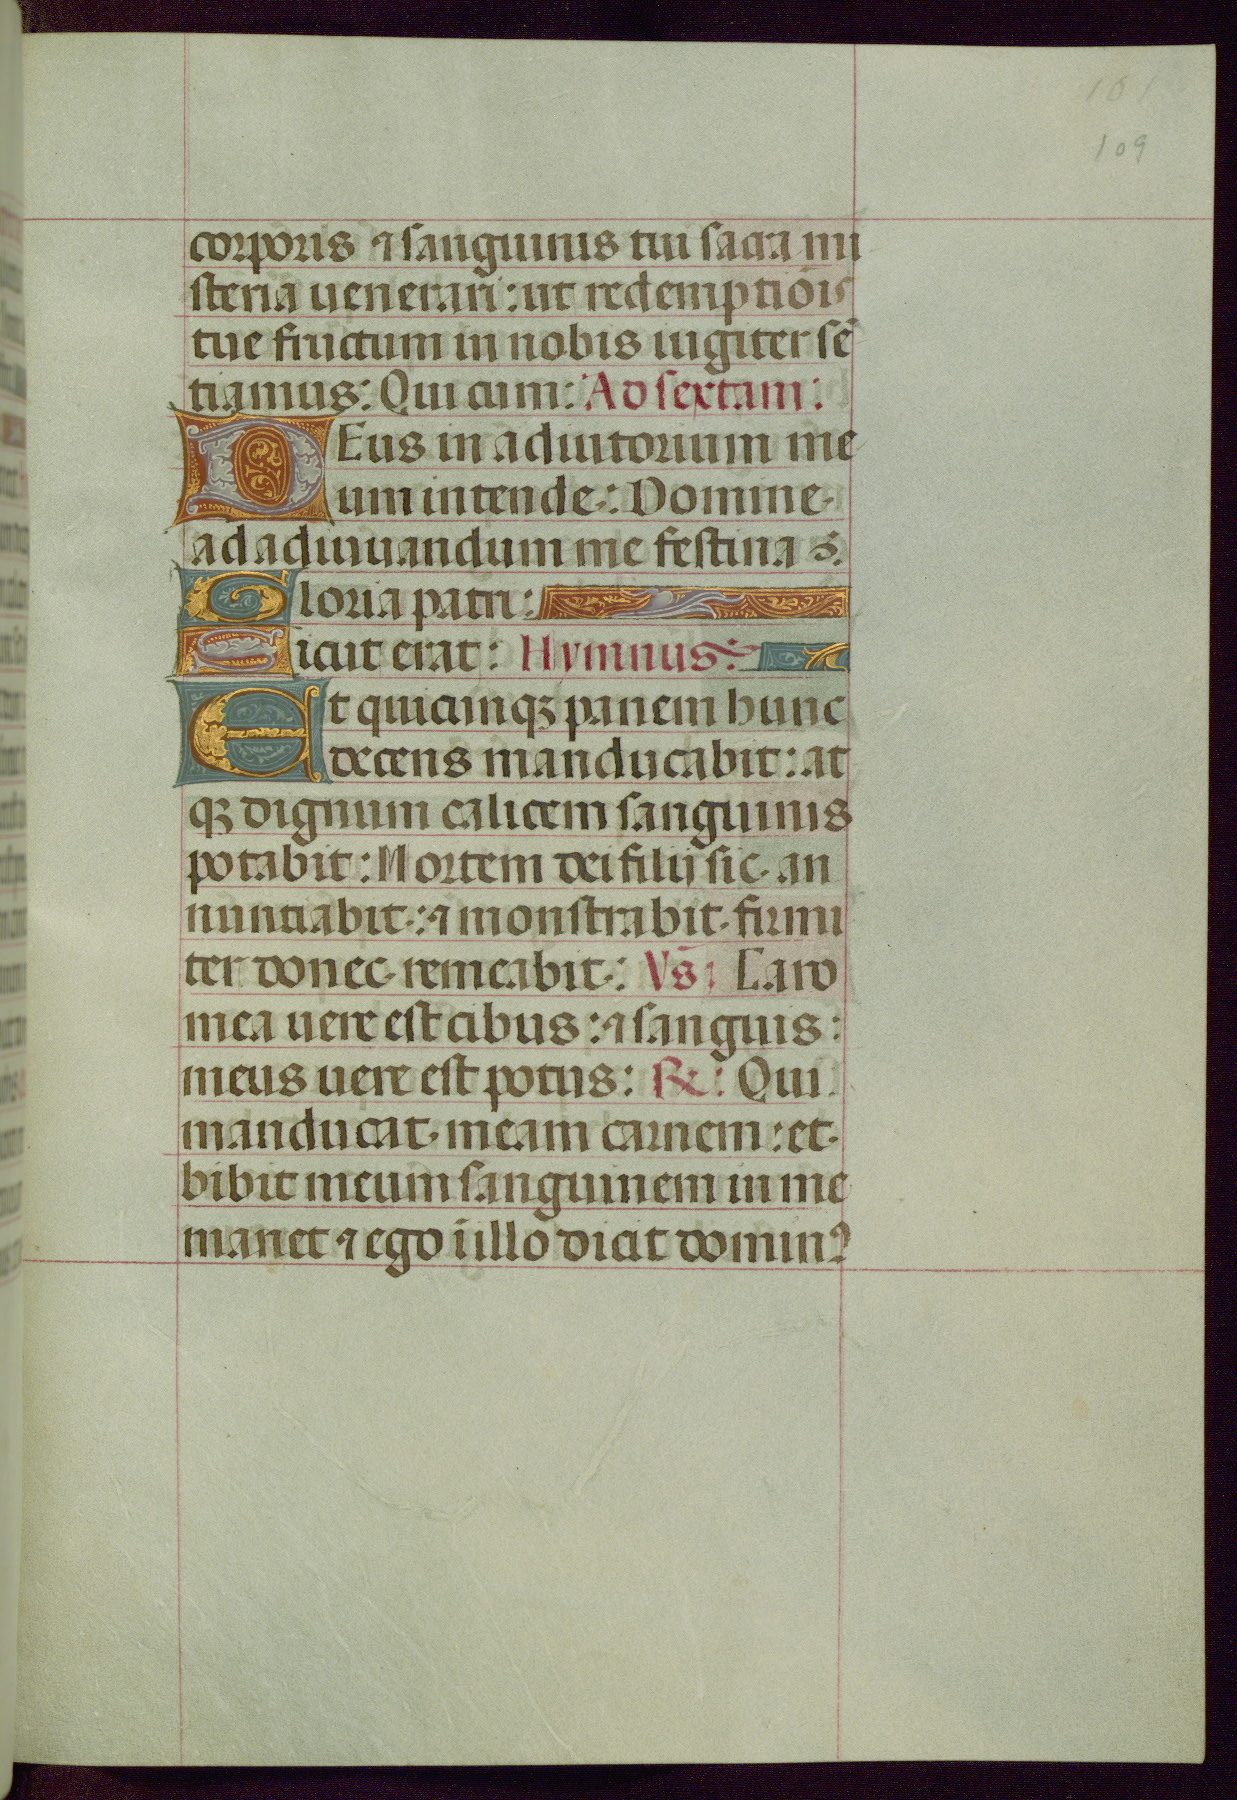 101
109
corporis ⁊ sanguinis tui sacra mi
steria uenerari : ut redemptiōis
tue fructum in nobis iugiter sē
tiamus : Qui cum : Ad sextam :
DEus in adiutorium me
um intende : Domine
ad adiuuandum me festina :
Gloria patri :
Sicut erat : Hymnus :
Et quicumqꝫ panem hunc
decens manducabit : at
qꝫ dignum calicem sanguinis
potabit : Mortem dei filij sic an
nunciabit : ⁊ monstrabit firmi
ter donec remeabit : Vs̄ : Caro
mea uere est cibus : ⁊ sanguis :
meus uere est potus : ℞ : Qui
manducat meam carnem : et
bibit meum sanguinem in me
manet ⁊ ego ī illo dicit dominꝰ